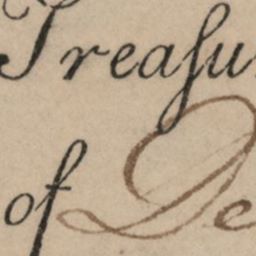 Treaſu
of De